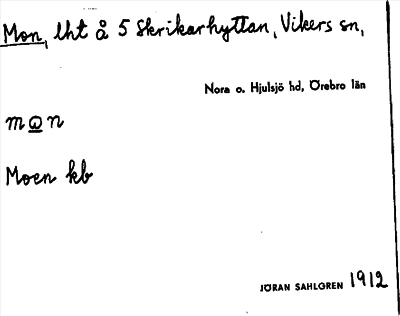 Mon, lht å 5 Skrikarhyttan, Vikers sn,
Nora o. Hjulsjö hd, Örebro län
mωn
Moen kb
JÖRAN SAHLGREN 1912